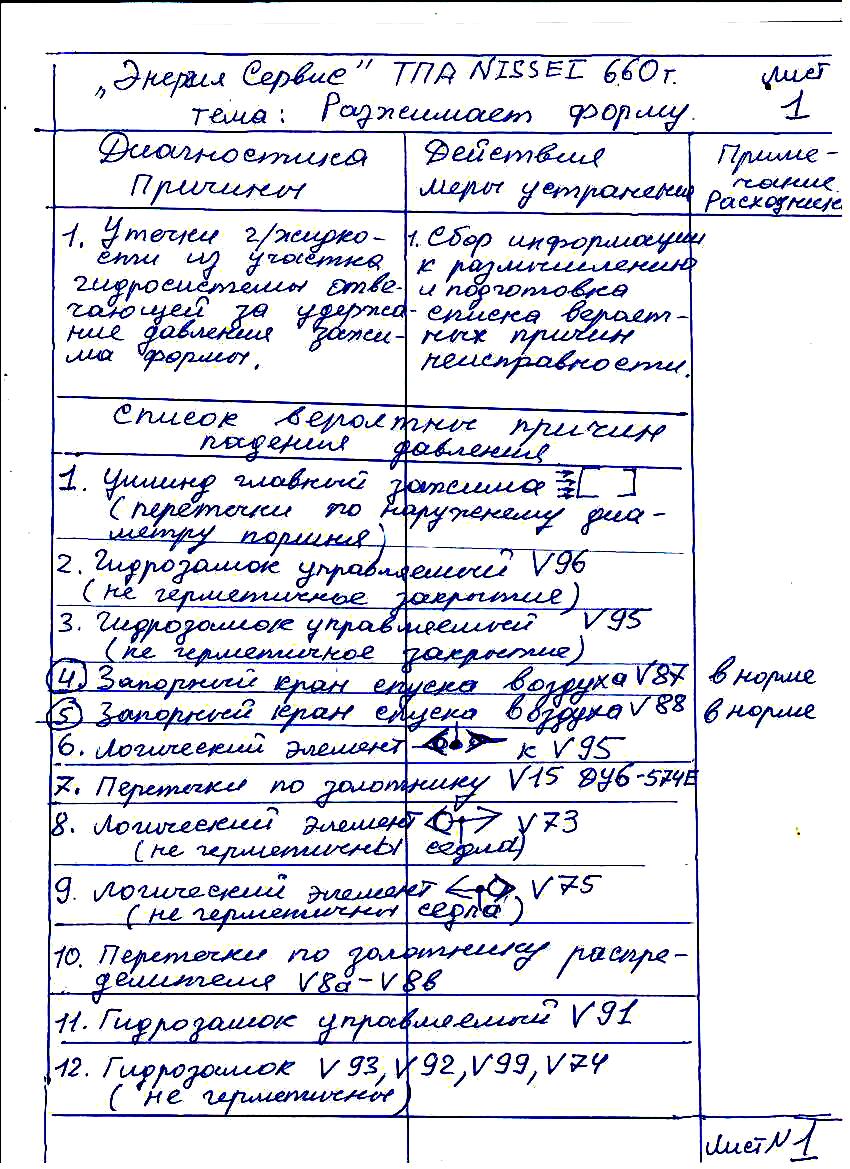 „Энергия Сервис” ТПА NISSEI 660т. лист
тема: Разжимает форму. 1
Диагностика
Причины
Действия
меры устранения
Приме-
чание.
Расходники
1. Утечки г/жидко-
сти из участка
гидросистемы отве-
чающей за удержа-
ние давления зажи-
ма формы.
1. Сбор информации
к размышлению
и подготовка
списка вераят-
ных причин
неисправности.
Список вероятных причин
падения давления
1. Цилинд главный зажима
(перетечки по наружнему диа-
метру поршня)
2. Гидрозамок управляемый V96
(не герметичное закрытие)
3. Гидрозамок управляемый V95
(не герметичное закрытие)
4. Запорный кран спуска воздуха V87 в норме
5 Запорный кран спуска воздуха V88 в норме
6. Логический элемент к V95
7. Перетечки по золотнику V15 ДУ6-574Е
8. Логический элемент V73
(не герметичны седла)
9. Логический элемент V75
(не герметичны седла)
10. Перетечки по золотнику распре-
делителя V8а-V8в
11. Гидрозамок управляемый V91
12. Гидрозамок V93, V92, V99, V74
(не герметичны)
Лист N 1